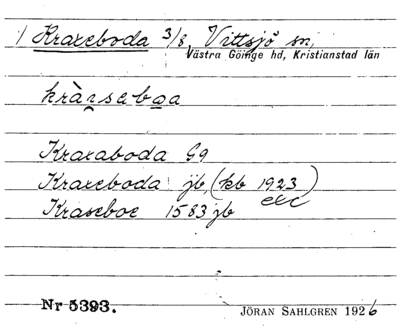 1) Kraxeboda 3/8 Vittsjö sn,
Västra Göinge hd, Kristianstad län
kràṷsebo̲a
Kraxaboda G9
Kraxeboda jb, (kb 1923) etc
Kraseboe 1583 jb
Nr 5393. JÖRAN SAHLGREN 1926